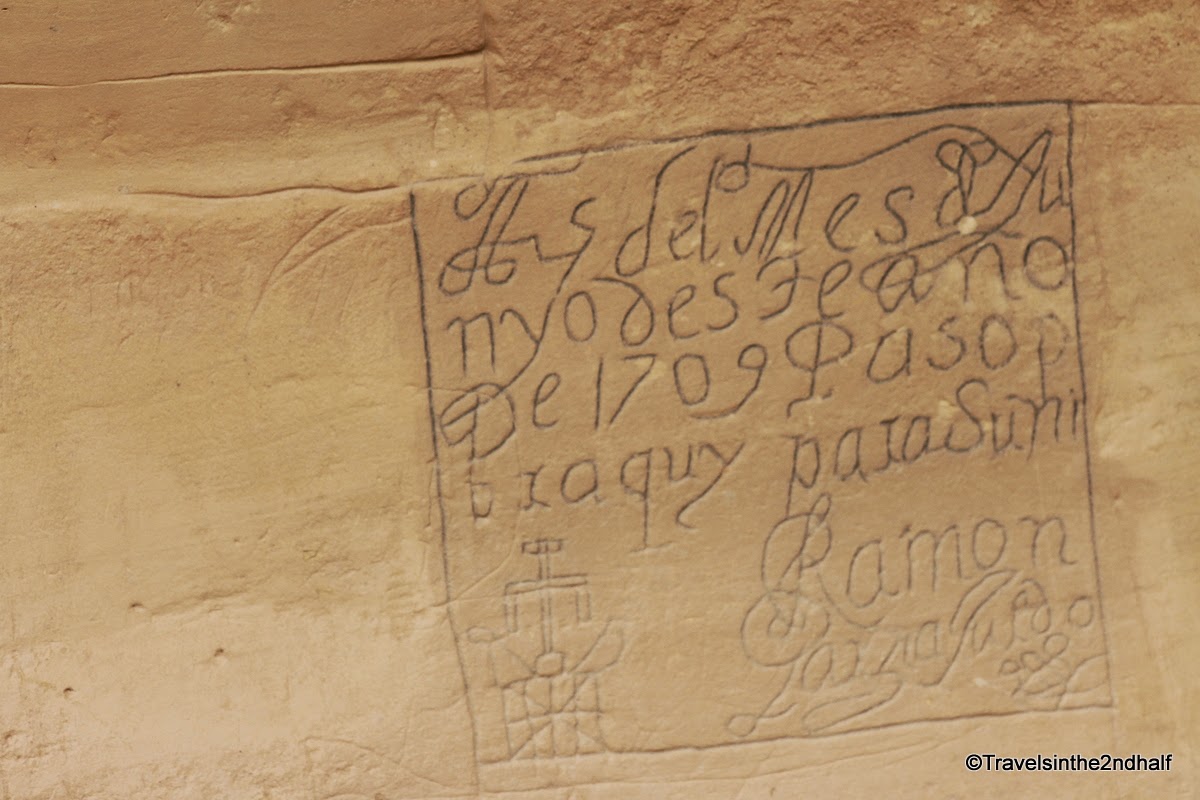 A 5 del Mes d Ju
nyo deste año
De 1709 Paso p
r aquy para Suñi
Ramon
Garzia Jurdo
©Travelsinthe2ndhalf